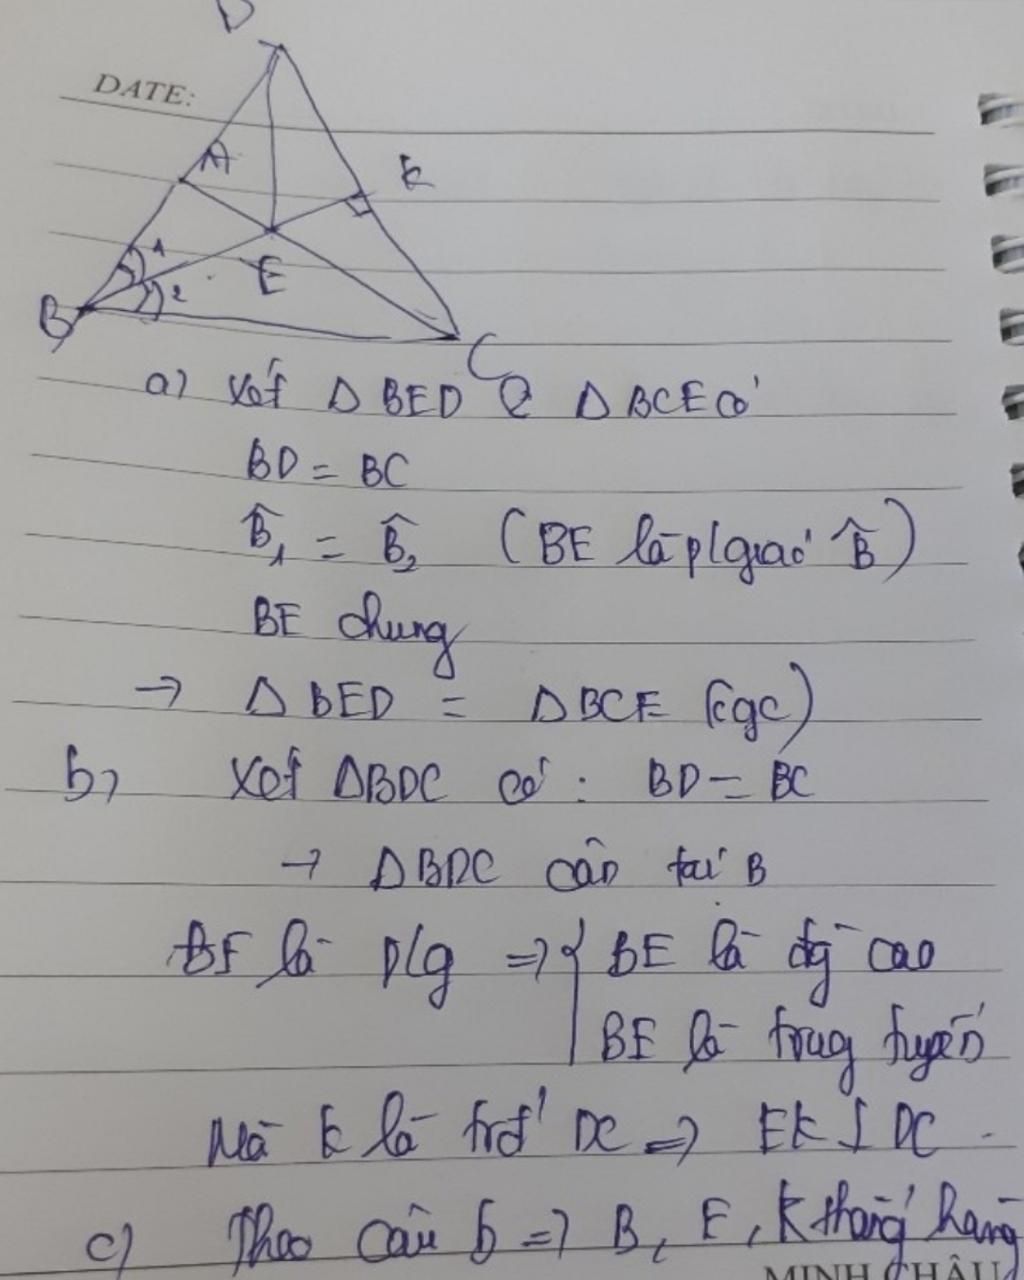 D
DATE:
A
K
1
E
2
B
C
a) Xét Δ BED & Δ BCE có
BD = BC
B̂₁ = B̂₂ (BE là p/giác B̂)
BE chung
→ Δ BED = Δ BCE (cgc)
b) Xét ΔBDC có : BD = BC
→ ΔBDC cân tại B
BE là p/g => { BE là đg cao
BE là trung tuyến
Mà K là trđ DC => EK ⊥ DC
c) Theo câu b => B, E, K thẳng hàng
MINH CHÂU